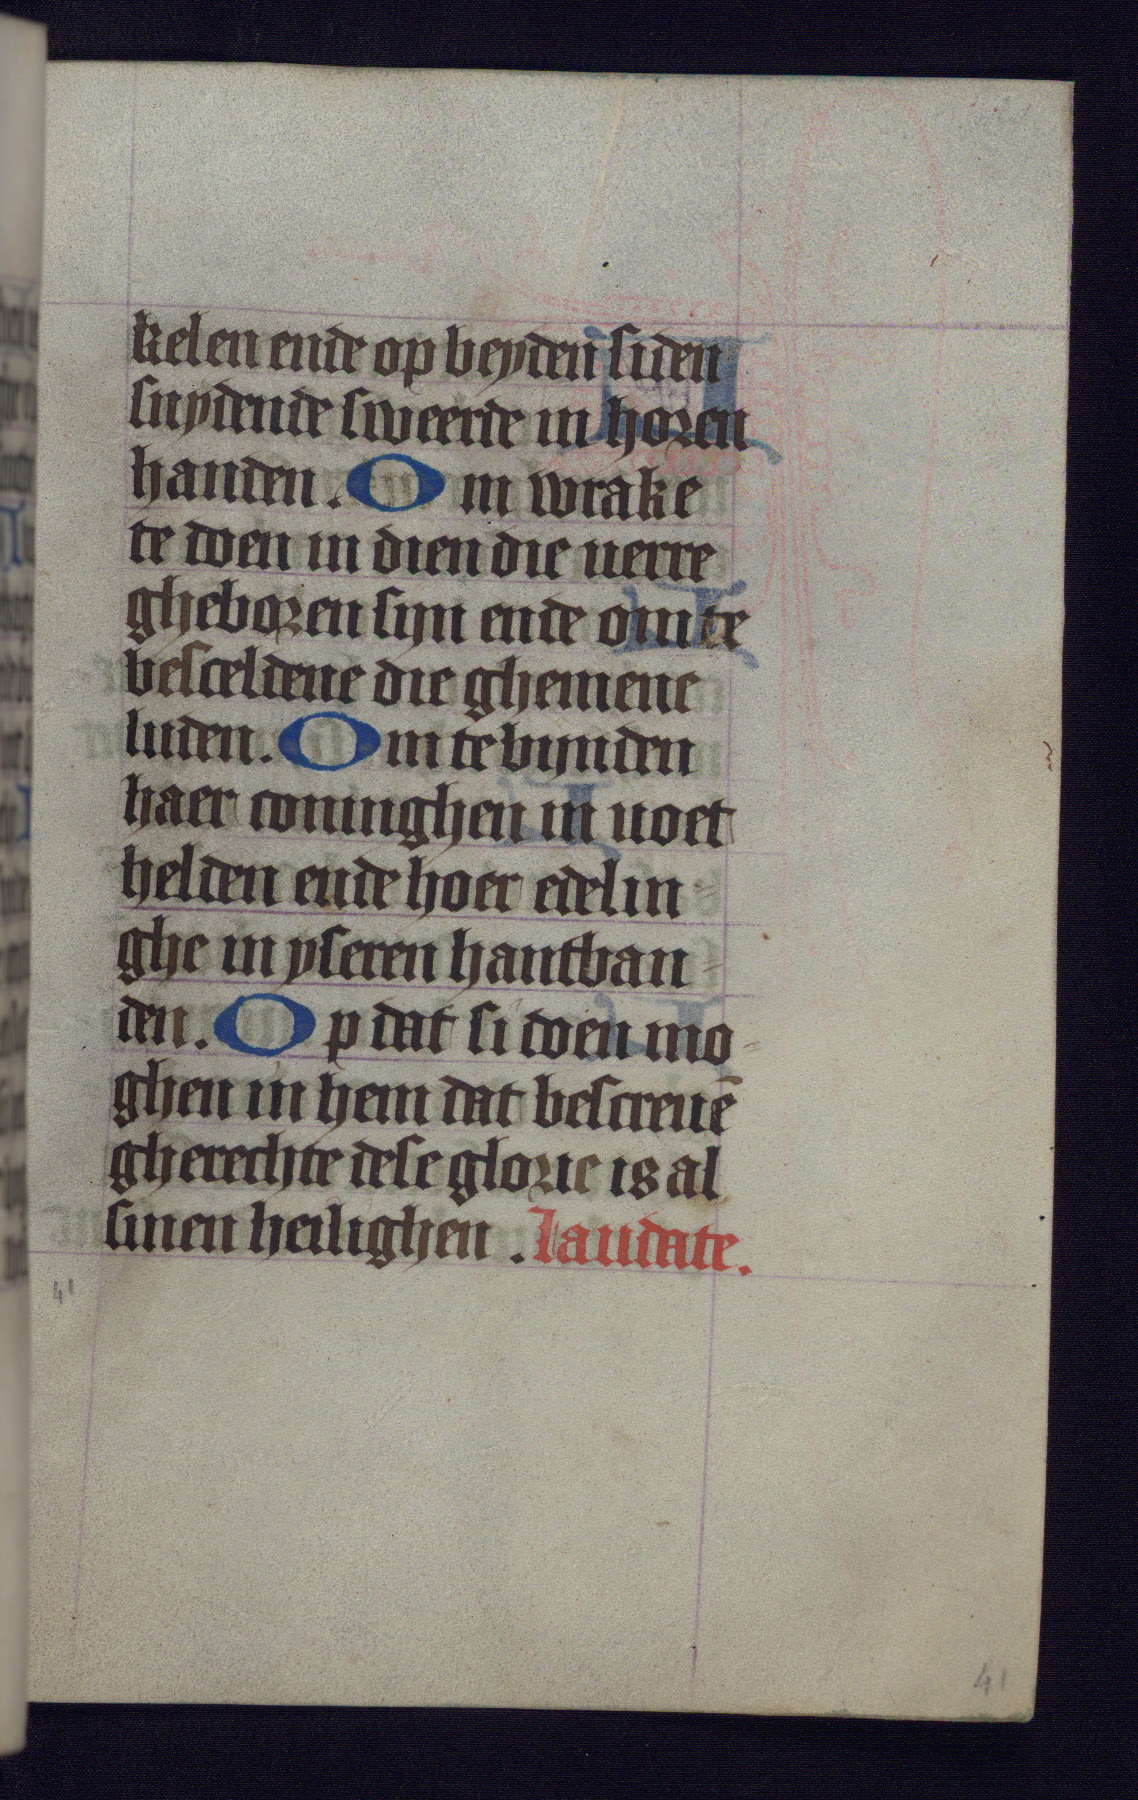 kelen ende op beyden siden
snydende sweerde in horen
handen. Om wrake
te doen in dien die verre
gheboren syn ende om te
besceldene die ghemene
luden. Om te bynden
haer coninghen in voet
helden ende hoer edelin
ghe in yseren hantban
den. Op dat si doen mo
ghen in hem dat bescreuē
gherechte dese glorie is al
sinen heilighen. laudate.
41
41